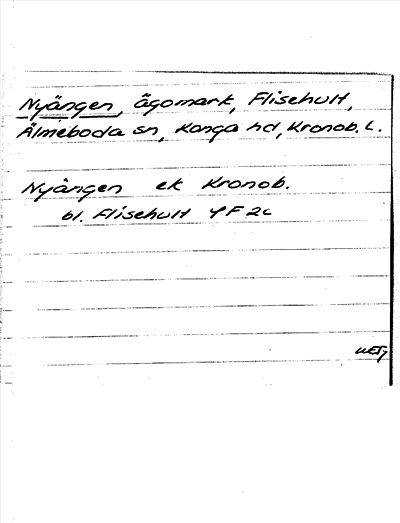 Nyängen, ägomark, Flisehult,
Älmeboda sn, Konga hd, Kronob. L.
Nyängen ek Kronob.
bl. Flisehult 4F 2c